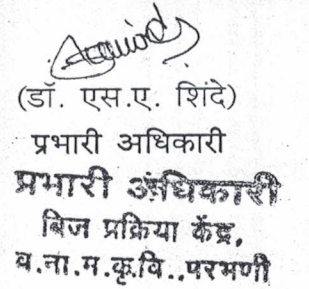 (डॉ. एस.ए. शिंदे)
प्रभारी अधिकारी
प्रभारी अधिकारी
बिज प्रक्रिया केंद्र,
व.ना.म.कृ.वि.,परभणी